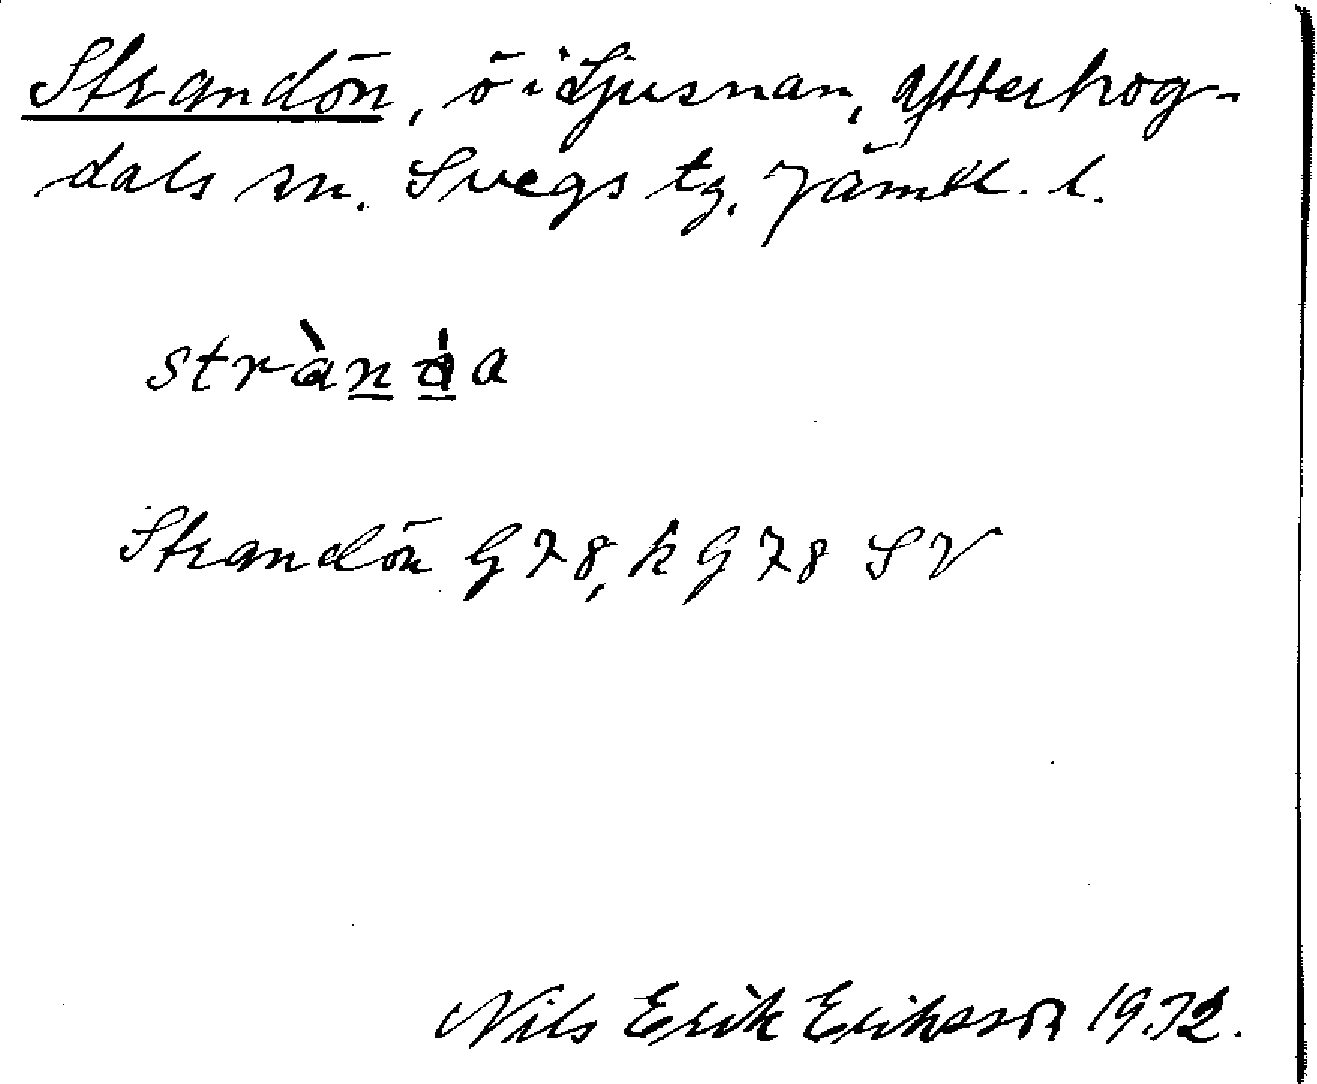 Strandön, ö i Ljusnan, Ytterhog-
dals sn. Svegs tg. Jämtl. l.
stràn̲ȯ̲a
Strandön G78, h G78 SV
Nils Erik Eriksson 1932.